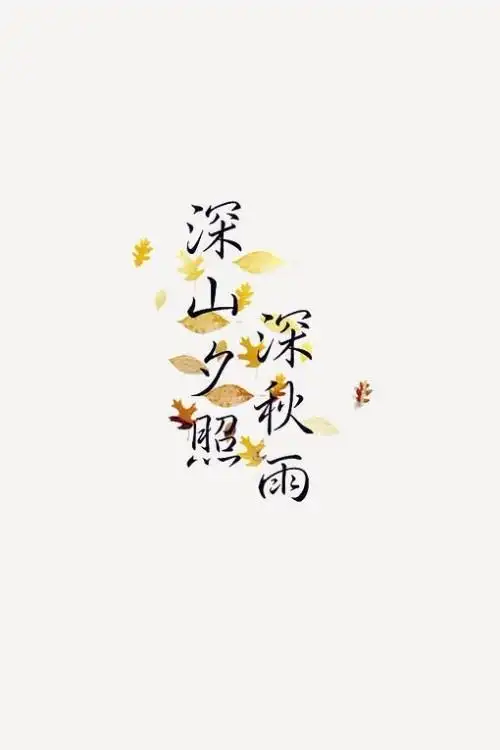 深山夕照
深秋雨